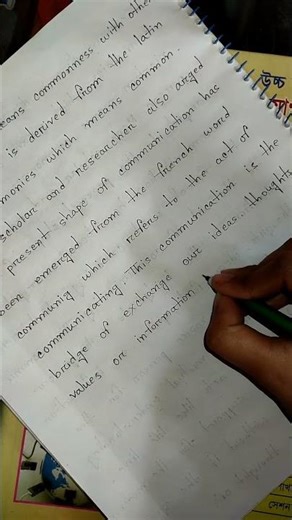 means commonness with other
is derived from the latin
monies which means common.
scholar and researcher also arged
present shape of communication has
been emerged from the french word
communig which refers to the act of
communicating. This communication is the
bridge of exchange our ideas.. thoughts
values or information
উচ্চ